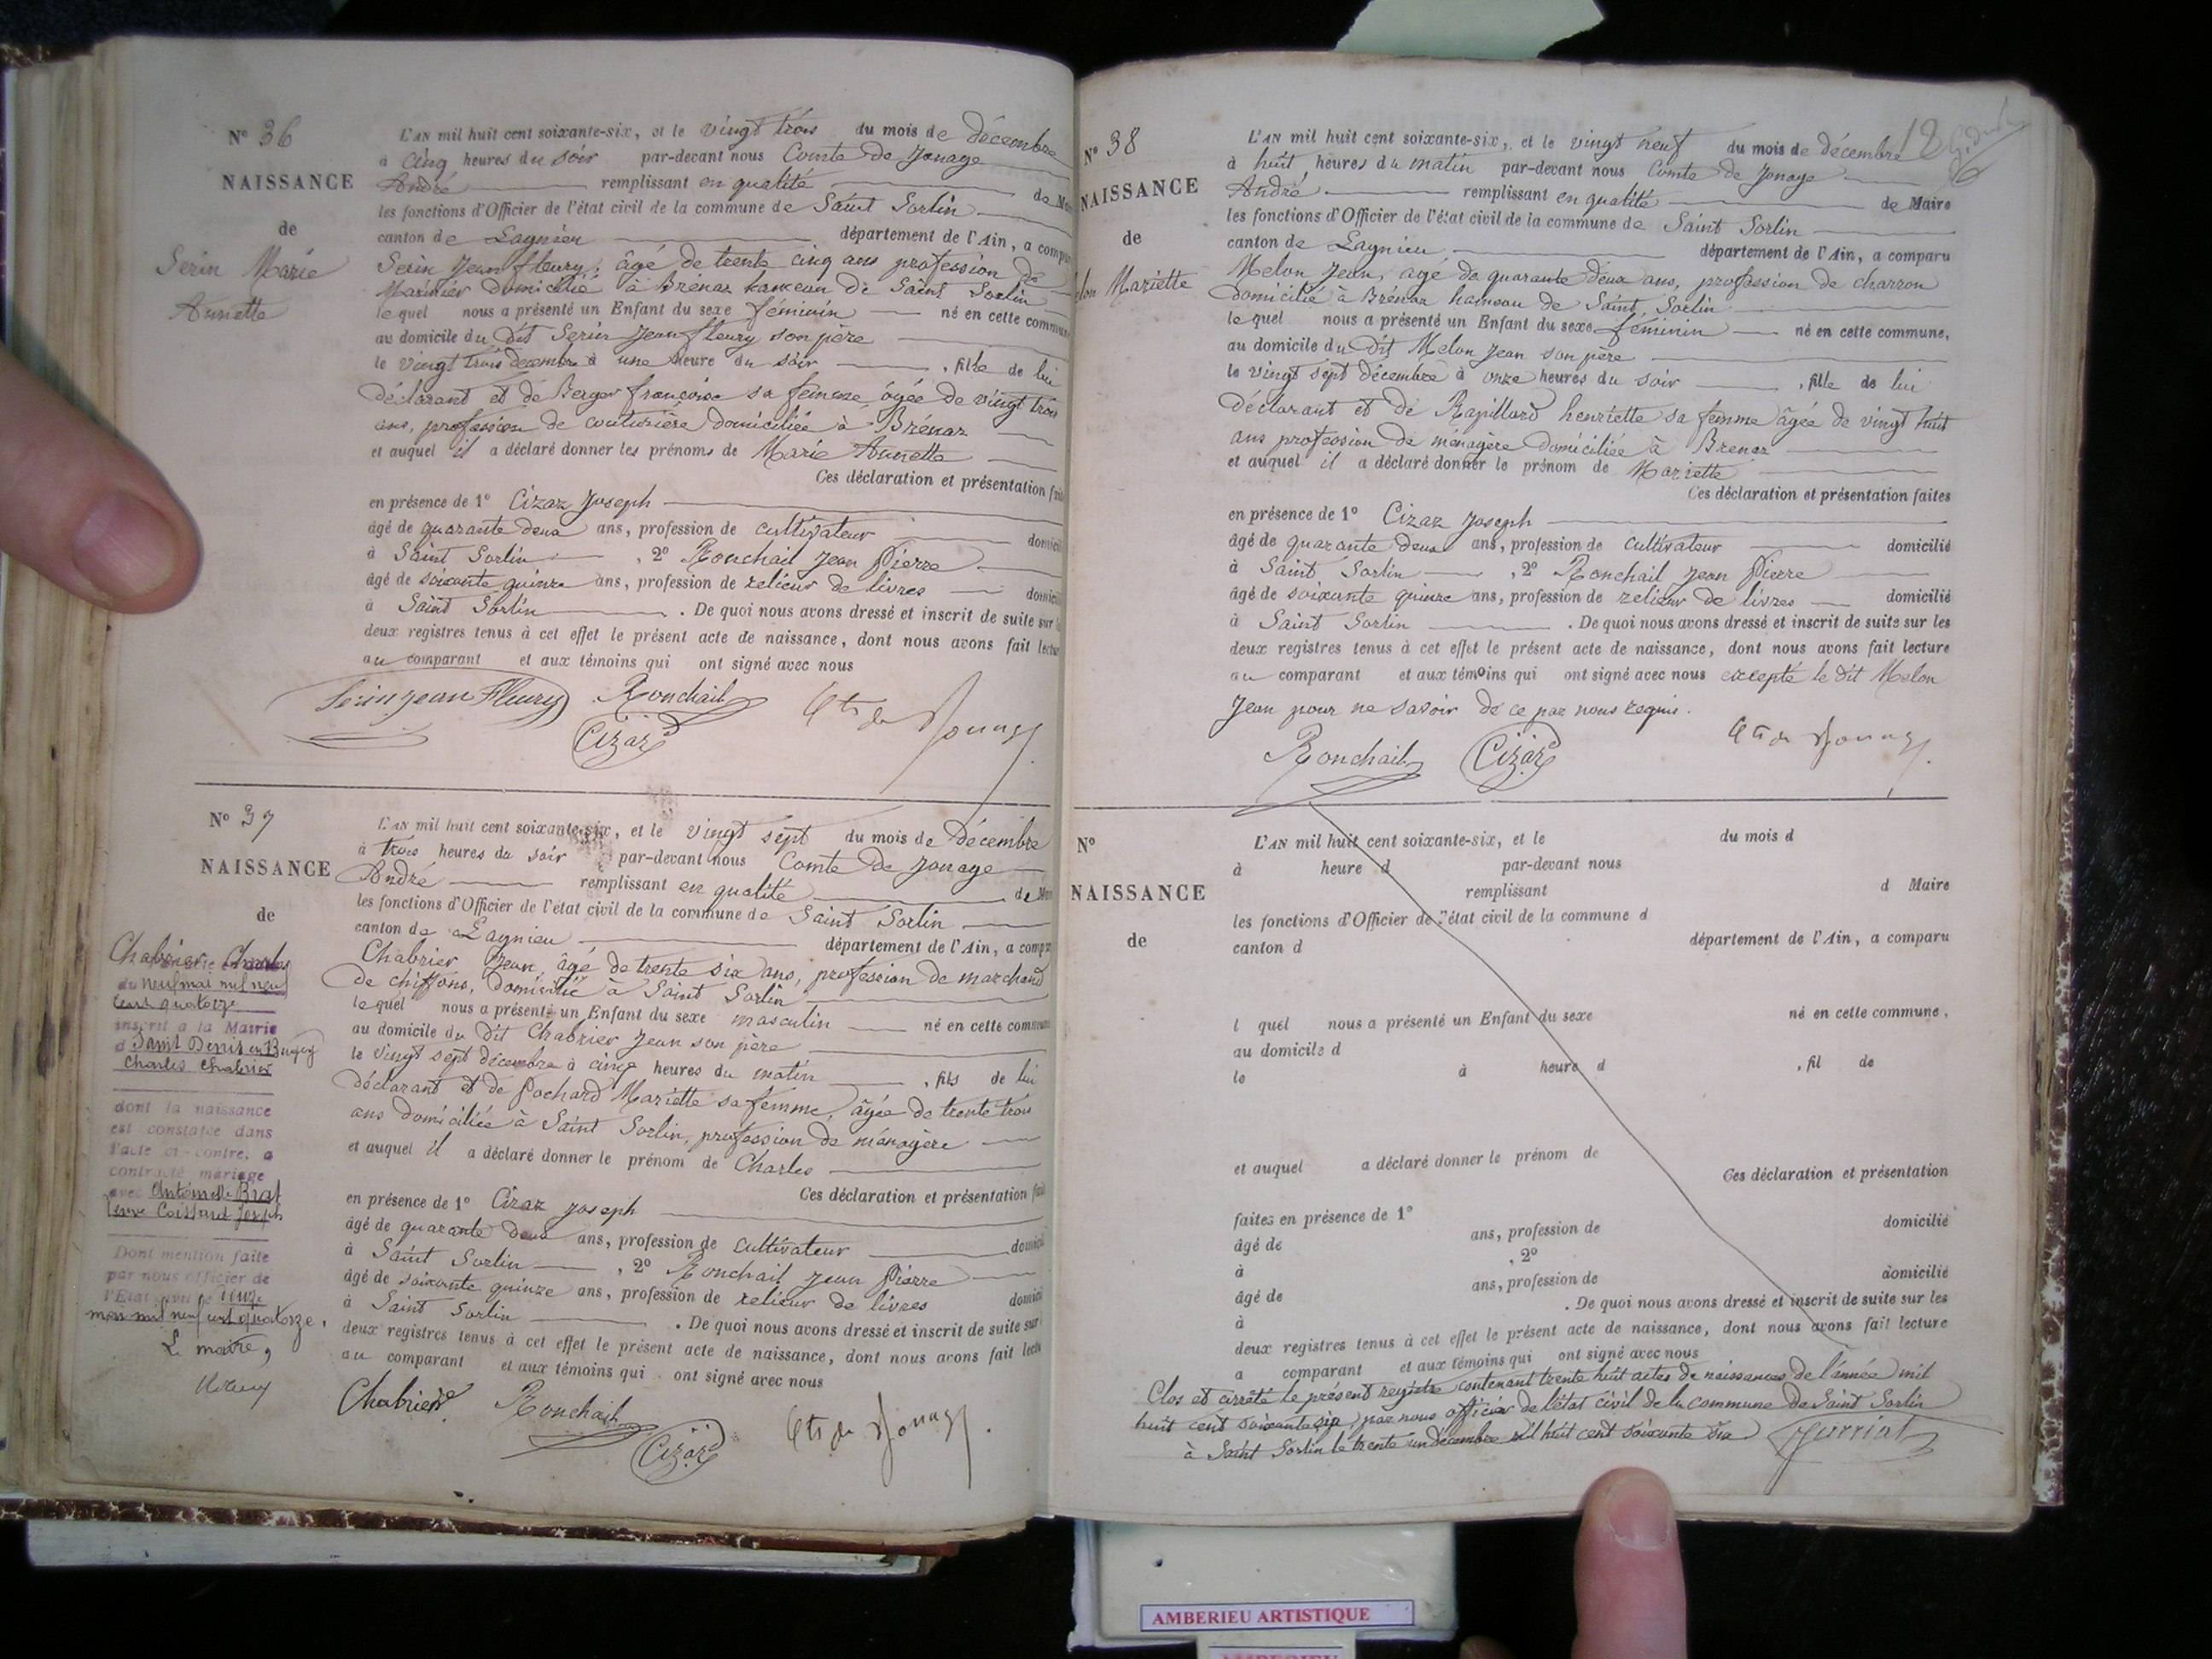 N° 36
NAISSANCE
de
Serin Marie
Annette
L'AN mil huit cent soixante-six, et le vingt trois du mois de décembre
à cinq heures du soir par-devant nous Comte de Jonage
André remplissant en qualité de
les fonctions d'Officier de l'état civil de la commune de Saint Sorlin
canton de Lagnieu département de l'Ain, a
Serin Jean fleury, âgé de trente cinq ans profession de
Marinier domicilié à Brénaz hameau de Saint Sorlin
lequel nous a présenté un Enfant du sexe féminin né en cette
au domicile du dit Serin Jean fleury son père
le vingt trois décembre à une heure du soir , fille de lui
déclarant et de Berger françoise sa femme, âgée de vingt trois
ans, profession de couturière domiciliée à Brénaz
et auquel il a déclaré donner les prénoms de Marie Annette
Ces déclaration et présentation
en présence de 1° Cizaz Joseph
âgé de quarante deux ans, profession de cultivateur
à Saint Sorlin , 2° Ronchail Jean Pierre
âgé de soixante quinze ans, profession de relieur de livres
à Saint Sorlin . De quoi nous avons dressé et inscrit de suite sur
deux registres tenus à cet effet le présent acte de naissance, dont nous avons fait
au comparant et aux témoins qui ont signé avec nous
Serin jean Fleury Ronchail Cte de Jonage
Cizaz
N° 37
NAISSANCE
de
Chabrier Charles
du neuf mai mil neuf
cent quatorze
inscrit à la Mairie
d Saint Denis en Bugey
Charles Chabrier
dont la naissance
est constatée dans
l'acte ci-contre, a
contracté mariage
avec Antoinette Brat
veuve Joseph
Dont mention faite
par nous officier de
l'Etat civil le onze
mai mil neuf cent quatorze.
Le maire,
L'AN mil huit cent soixante-six, et le vingt sept du mois de décembre
à trois heures du soir par-devant nous Comte de Jonage
André remplissant en qualité de
les fonctions d'Officier de l'état civil de la commune de Saint Sorlin
canton de Lagnieu département de l'Ain, a
Chabrier Jean, âgé de trente six ans, profession de marchand
de chiffons, domicilié à Saint Sorlin
lequel nous a présenté un Enfant du sexe masculin né en cette
au domicile du dit Chabrier Jean son père
le vingt sept décembre à cinq heures du matin , fils de lui
déclarant et de Pochard Mariette sa femme, âgée de trente trois
ans domiciliée à Saint Sorlin, profession de ménagère
et auquel il a déclaré donner le prénom de Charles
Ces déclaration et présentation
en présence de 1° Cizaz Joseph
âgé de quarante deux ans, profession de cultivateur
à Saint Sorlin , 2° Ronchail Jean Pierre
âgé de soixante quinze ans, profession de relieur de livres
à Saint Sorlin . De quoi nous avons dressé et inscrit de suite sur
deux registres tenus à cet effet le présent acte de naissance, dont nous avons fait
au comparant et aux témoins qui ont signé avec nous
Chabrier Ronchail Cte de Jonage
Cizaz
N° 38
NAISSANCE
de
Mariette
18
L'AN mil huit cent soixante-six, et le vingt neuf du mois de décembre
à huit heures du matin par-devant nous Comte de Jonage
André remplissant en qualité de Maire
les fonctions d'Officier de l'état civil de la commune de Saint Sorlin
canton de Lagnieu département de l'Ain, a comparu
Melon Jean, âgé de quarante deux ans, profession de charron
domicilié à Brénaz hameau de Saint Sorlin
lequel nous a présenté un Enfant du sexe féminin né en cette commune,
au domicile du dit Melon Jean son père
le vingt sept décembre à onze heures du soir , fille de lui
déclarant et de Rapillard henriette sa femme âgée de vingt huit
ans profession de ménagère domiciliée à Brenaz
et auquel il a déclaré donner le prénom de Mariette
Ces déclaration et présentation faites
en présence de 1° Cizaz Joseph
âgé de quarante deux ans, profession de cultivateur domicilié
à Saint Sorlin , 2° Ronchail Jean Pierre
âgé de soixante quinze ans, profession de relieur de livres domicilié
à Saint Sorlin . De quoi nous avons dressé et inscrit de suite sur les
deux registres tenus à cet effet le présent acte de naissance, dont nous avons fait lecture
au comparant et aux témoins qui ont signé avec nous excepté le dit Melon
Jean pour ne savoir de ce par nous requis.
Ronchail Cizaz Cte de Jonage
N°
NAISSANCE
de
L'AN mil huit cent soixante-six, et le du mois d
à heure d par-devant nous
remplissant d Maire
les fonctions d'Officier de l'état civil de la commune d
canton d département de l'Ain, a comparu
l quel nous a présenté un Enfant du sexe né en cette commune,
au domicile d
le à heure d , fil de
et auquel a déclaré donner le prénom de
Ces déclaration et présentation
faites en présence de 1°
âgé de ans, profession de domicilié
à , 2°
âgé de ans, profession de domicilié
à . De quoi nous avons dressé et inscrit de suite sur les
deux registres tenus à cet effet le présent acte de naissance, dont nous avons fait lecture
a comparant et aux témoins qui ont signé avec nous
Clos et arrêté le présent registre contenant trente huit actes de naissances de l'année mil
huit cent soixante six par nous officier de l'état civil de la commune de Saint Sorlin
à Saint Sorlin le trente un décembre mil huit cent soixante six
AMBERIEU ARTISTIQUE